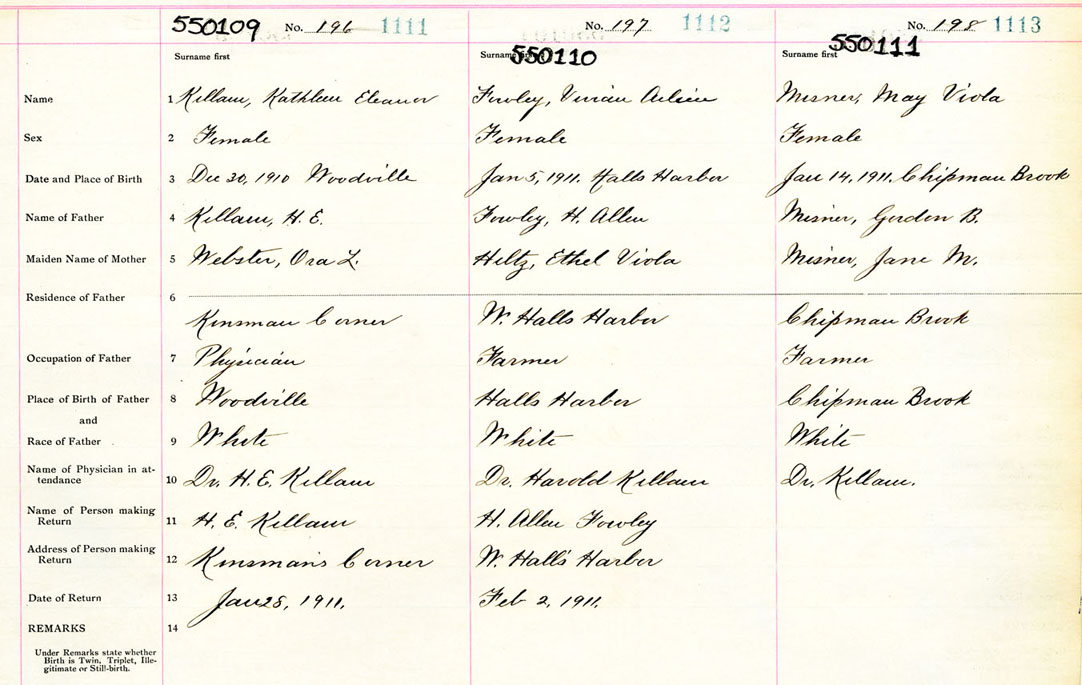 550109 No. 196 1111
No. 197 1112
550110
No. 198 1113
550111
Surname first
Surname first
Surname first
Name 1 Killam, Kathleen Eleanor Fowley, Vivian Misner, May Viola
Sex 2 Female Female Female
Date and Place of Birth 3 Dec 30, 1910 Woodville Jan 5, 1911. Halls Harbor Jan 14, 1911. Chipman Brook
Name of Father 4 Killam, H. E. Fowley, H. Allen Misner, Gordon B.
Maiden Name of Mother 5 Webster, Ora L. Hiltz, Ethel Viola Misner, Jane M.
Residence of Father 6
Kinsman Corner W. Halls Harbor Chipman Brook
Occupation of Father 7 Physician Farmer Farmer
Place of Birth of Father 8 Woodville Halls Harbor Chipman Brook
and
Race of Father 9 White White White
Name of Physician in at-
tendance 10 Dr. H. E. Killam Dr. Harold Killam Dr. Killam.
Name of Person making
Return 11 H. E. Killam H. Allen Fowley
Address of Person making
Return 12 Kinsman's Corner W. Hall's Harbor
Date of Return 13 Jan 28, 1911. Feb 2, 1911.
REMARKS 14
Under Remarks state whether
Birth is Twin, Triplet, Ille-
gitimate or Still-birth.